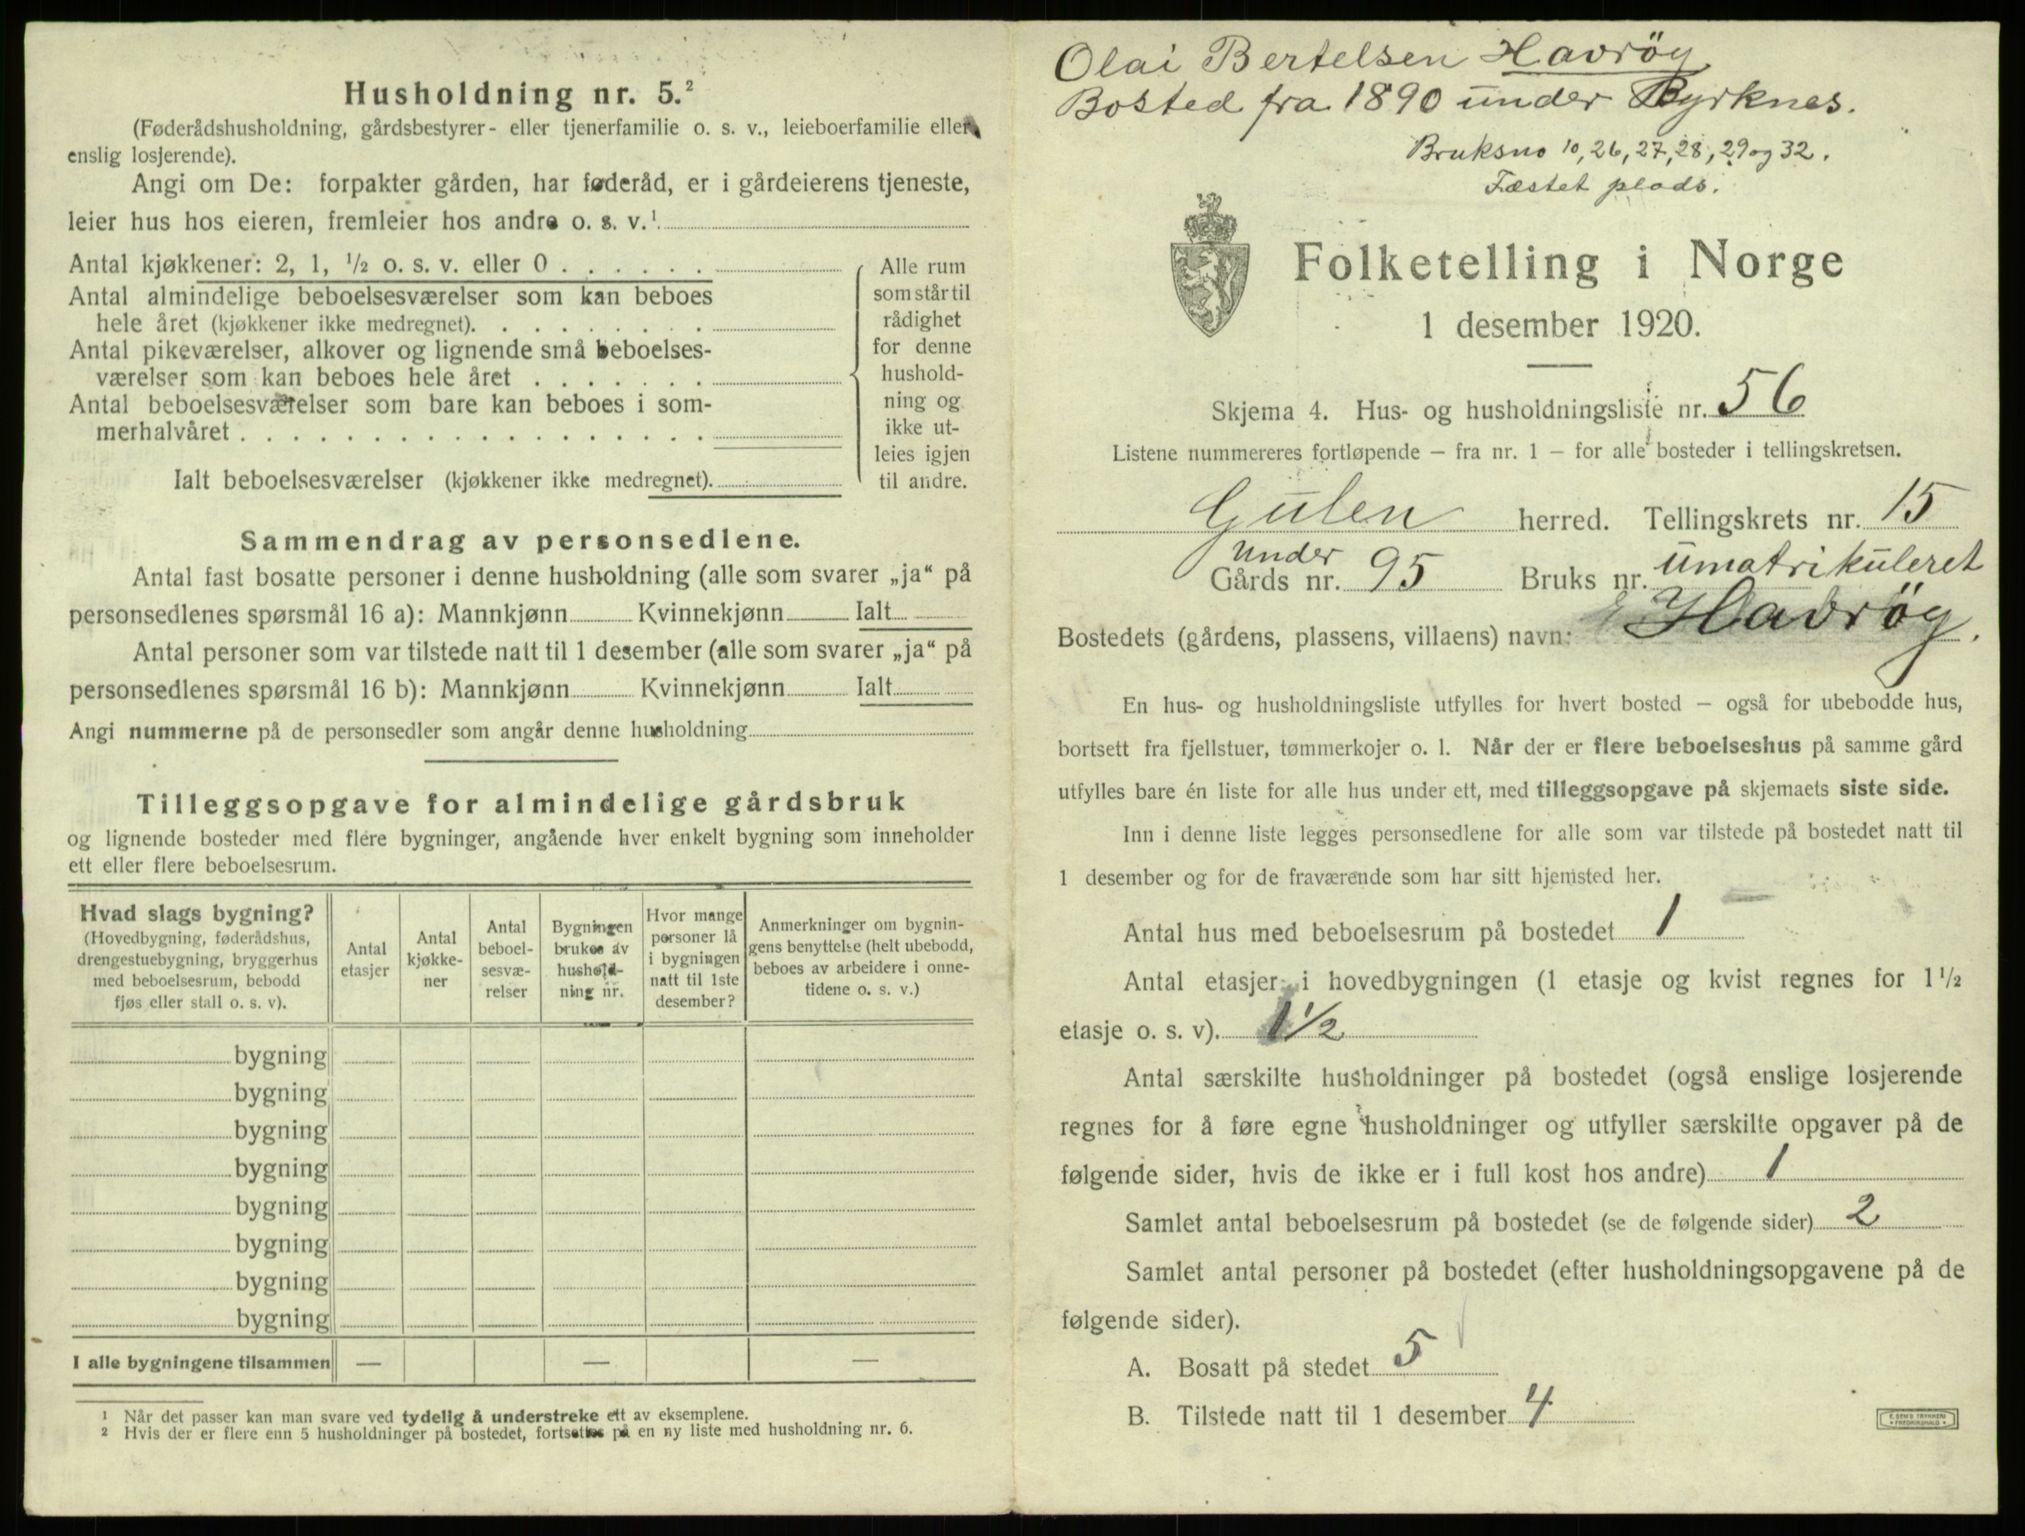 Husholdning nr. 5.²
(Føderådshusholdning, gårdsbestyrer- eller tjenerfamilie o. s. v., leieboerfamilie eller
enslig losjerende).
Angi om De: forpakter gården, har føderåd, er i gårdeierens tjeneste,
leier hus hos eieren, fremleier hos andre o. s. v.¹
Antal kjøkkener: 2, 1, ½ o. s. v. eller 0 . . . . . .
Antal almindelige beboelsesværelser som kan beboes
hele året (kjøkkener ikke medregnet). . . . . . . . .
Antal pikeværelser, alkover og lignende små beboelses-
værelser som kan beboes hele året . . . . . . .
Antal beboelsesværelser som bare kan beboes i som-
merhalvåret . . . . . . . . . . . . . . . . . .
Ialt beboelsesværelser (kjøkkener ikke medregnet).
Alle rum
som står til
rådighet
for denne
hushold-
ning og
ikke ut-
leies igjen
til andre.
Sammendrag av personsedlene.
Antal fast bosatte personer i denne husholdning (alle som svarer „ja“ på
personsedlenes spørsmål 16 a): Mannkjønn Kvinnekjønn Ialt
Antal personer som var tilstede natt til 1 desember (alle som svarer „ja“ på
personsedlenes spørsmål 16 b): Mannkjønn Kvinnekjønn Ialt
Angi nummerne på de personsedler som angår denne husholdning
Tilleggsopgave for almindelige gårdsbruk
og lignende bosteder med flere bygninger, angående hver enkelt bygning som inneholder
ett eller flere beboelsesrum.
Hvad slags bygning?
(Hovedbygning, føderådshus,
drengestuebygning, bryggerhus
med beboelsesrum, bebodd
fjøs eller stall o. s. v).
Antal
etasjer
Antal
kjøkke-
ner
Antal
beboel-
sesvæ-
relser
Bygningen
brukes av
hushold-
ning nr.
Hvor mange
personer lå
i bygningen
natt til 1ste
desember?
Anmerkninger om bygnin-
gens benyttelse (helt ubebodd,
beboes av arbeidere i onne-
tidene o. s. v.)
bygning
bygning
bygning
bygning
bygning
bygning
bygning
bygning
I alle bygningene tilsammen — — —
¹ Når det passer kan man svare ved tydelig å understreke ett av eksemplene.
² Hvis der er flere enn 5 husholdninger på bostedet, fortsettes på en ny liste med husholdning nr. 6.
Olai Bertelsen Havrøy
Bosted fra 1890 under Byrknes.
Bruksno 10, 26, 27, 28, 29 og 32.
Fæstet plads.
Folketelling i Norge
1 desember 1920.
Skjema 4. Hus- og husholdningsliste nr. 56
Listene nummereres fortløpende – fra nr. 1 – for alle bosteder i tellingskretsen.
Gulen herred. Tellingskrets nr. 15
under
Gårds nr. 95 Bruks nr. umatrikuleret
Bostedets (gårdens, plassens, villaens) navn: Havrøy.
En hus- og husholdningsliste utfylles for hvert bosted – også for ubebodde hus,
bortsett fra fjellstuer, tømmerkojer o. l. Når der er flere beboelseshus på samme gård
utfylles bare én liste for alle hus under ett, med tilleggsopgave på skjemaets siste side.
Inn i denne liste legges personsedlene for alle som var tilstede på bostedet natt til
1 desember og for de fraværende som har sitt hjemsted her.
Antal hus med beboelsesrum på bostedet 1
Antal etasjer i hovedbygningen (1 etasje og kvist regnes for 1 ½
etasje o. s. v). 1½
Antal særskilte husholdninger på bostedet (også enslige losjerende
regnes for å føre egne husholdninger og utfyller særskilte opgaver på de
følgende sider, hvis de ikke er i full kost hos andre) 1
Samlet antal beboelsesrum på bostedet (se de følgende sider) 2
Samlet antal personer på bostedet (efter husholdningsopgavene på de
følgende sider).
A. Bosatt på stedet 5
B. Tilstede natt til 1 desember 4